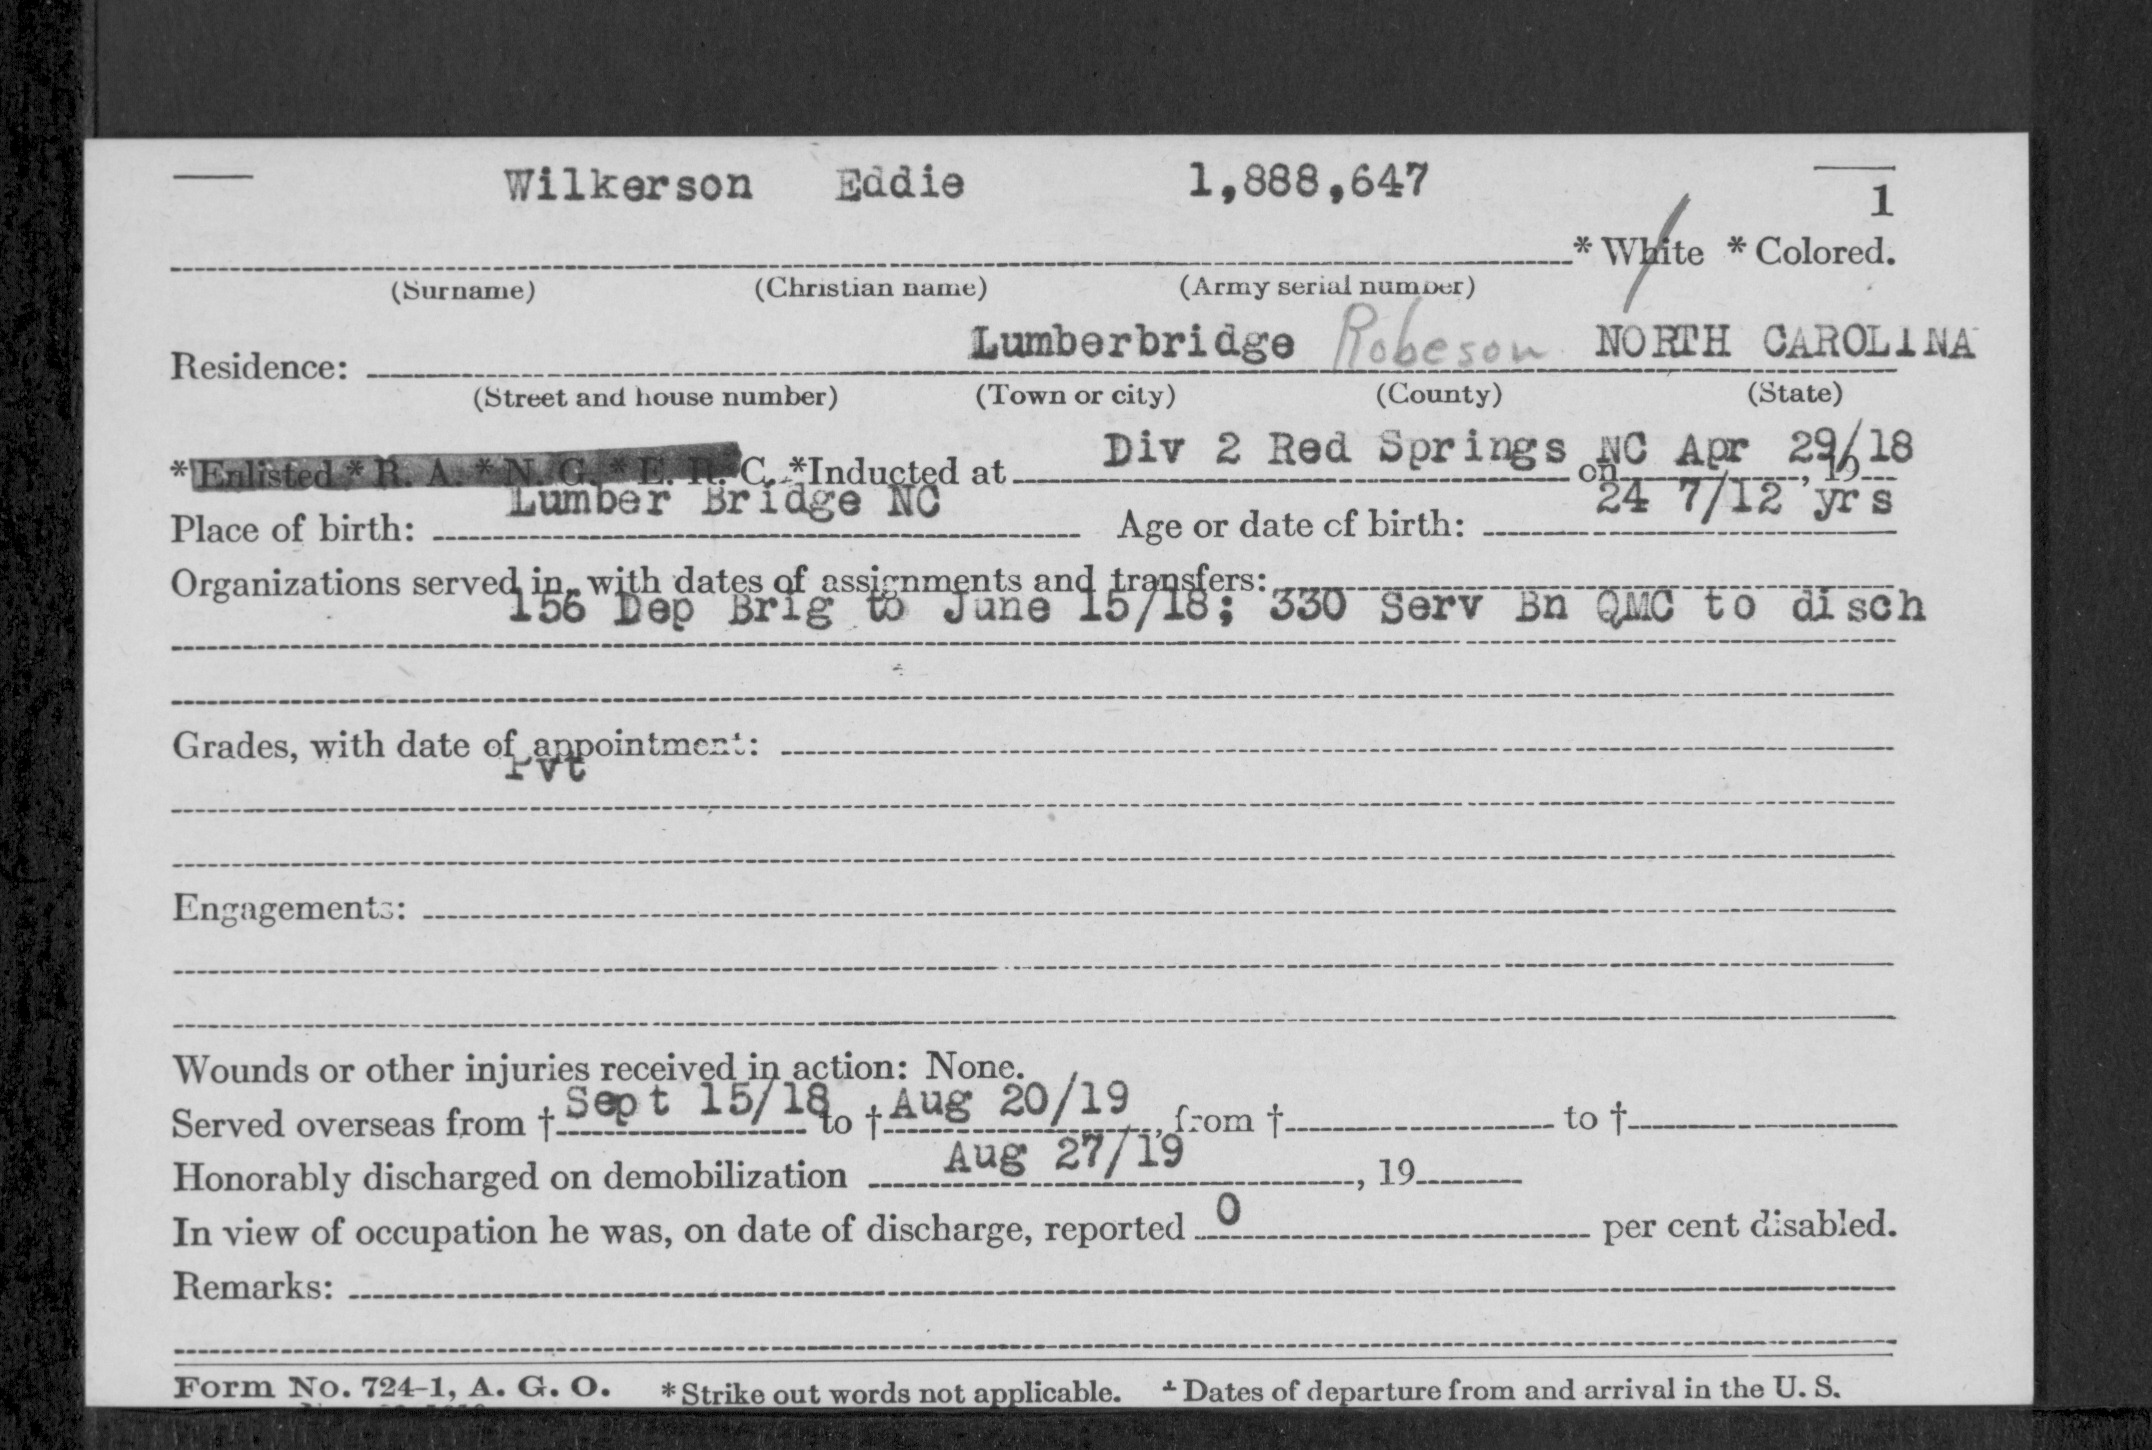 Wilkerson Eddie 1,888,647 1
* White * Colored.
(Surname) (Christian name) (Army serial number)
Residence: Lumberbridge Robeson NORTH CAROLINA
(Street and house number) (Town or city) (County) (State)
*Enlisted * R. A. * N. G. * E. R. C. *Inducted at Div 2 Red Springs NC on Apr 29/18, 19
Place of birth: Lumber Bridge NC Age or date of birth: 24 7/12 yrs
Organizations served in, with dates of assignments and transfers:
156 Dep Brig to June 15/18; 330 Serv Bn QMC to disch
Grades, with date of appointment:
Pvt
Engagements:
Wounds or other injuries received in action: None.
Served overseas from † Sept 15/18 to † Aug 20/19, from † to †
Honorably discharged on demobilization Aug 27/19, 19
In view of occupation he was, on date of discharge, reported 0 per cent disabled.
Remarks:
Form No. 724-1, A. G. O. *Strike out words not applicable. † Dates of departure from and arrival in the U. S.